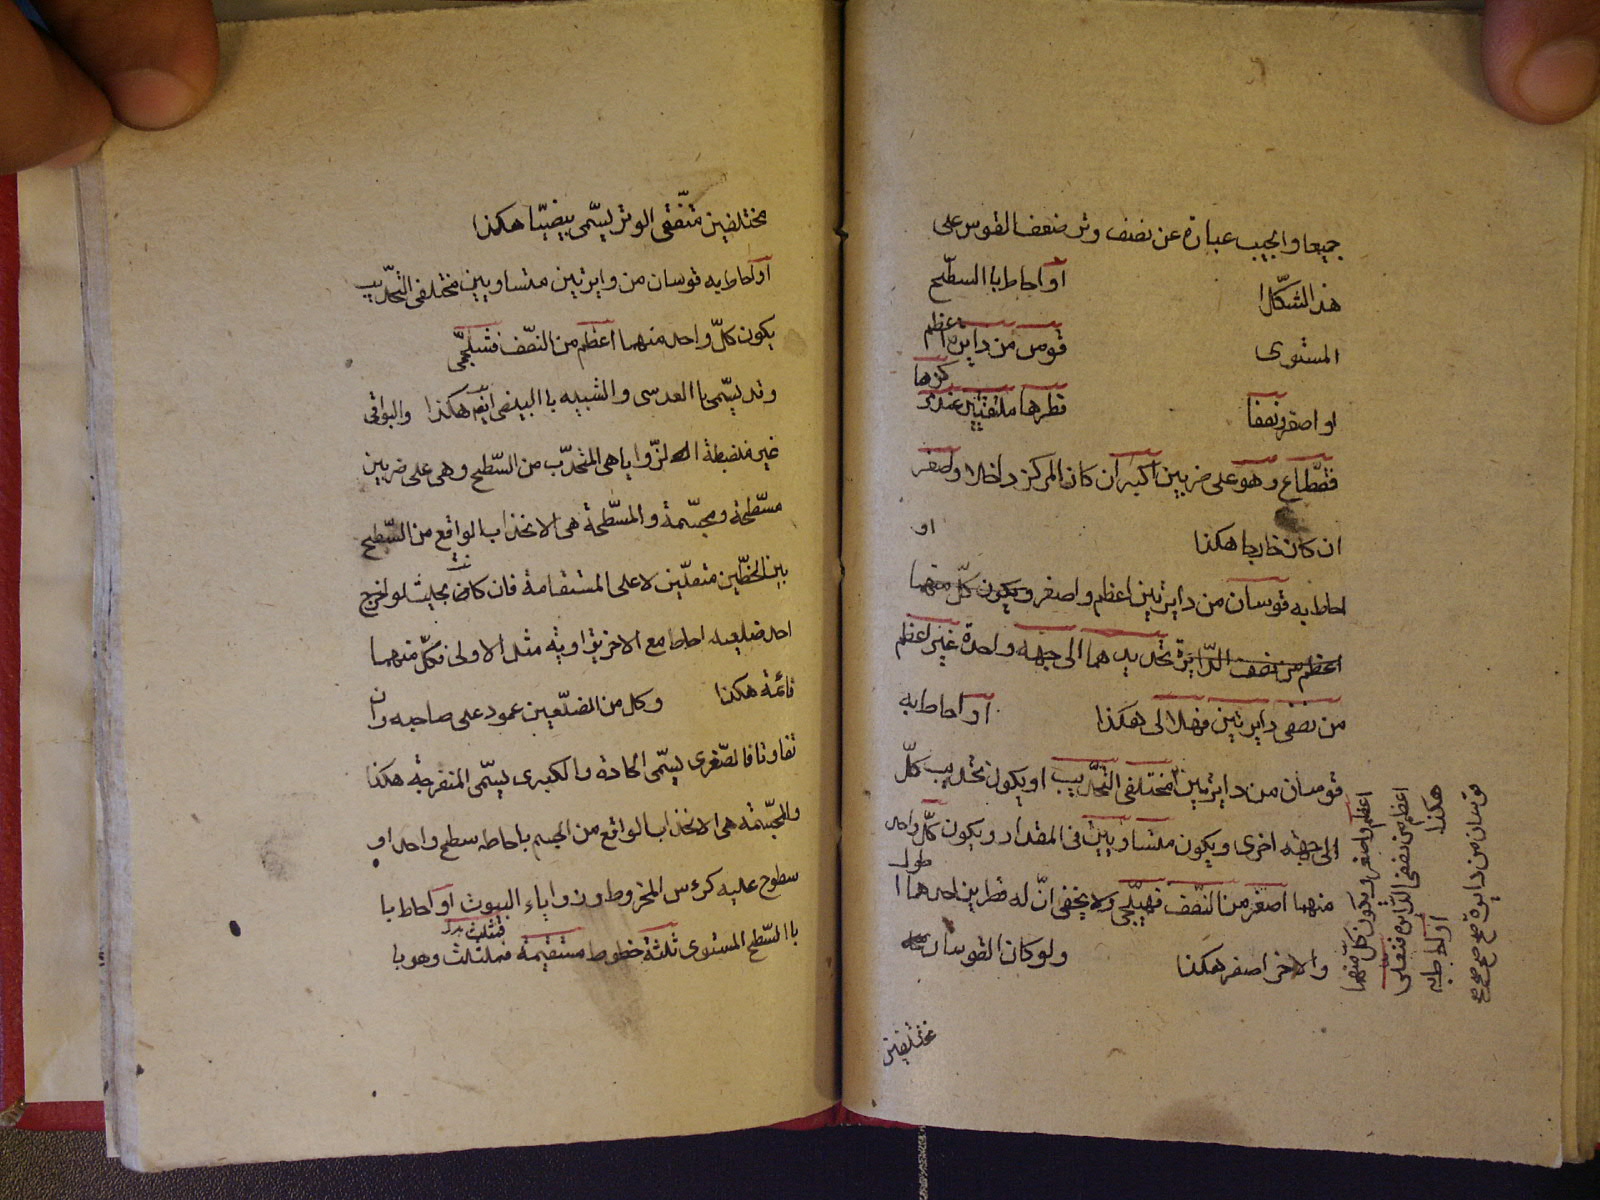 جميعا والجيب عبارة عن نصف وتر ضعف القوس على
هذا الشكل او احاط با السطح
المستوى قوس من دايرة اعظم
او اصغر ونصفا قطرها ملتقيين عند مركزها
فقطاع وهو على ضربين اكبر ان كان المركز داخلا واصغر
ان كان خارجا هكذا او
احاط به قوسان من دايرتين اعظم واصغر ويكون كل منهما
اعظم من نصف الدايرة تحديبهما الى جهة واحدة غير اعظم
من نصفى دايرتين فهلالى هكذا او احاط به
قوسان من دايرتين مختلفى التحديب او يكون تحديب كل
الى جهة اخرى ويكون متساويين فى المقدار ويكون كل واحد
منهما اصغر من النصف فهيلجى ولا يخفى ان له قطرين احدهما اطول
والاخر اصغر هكذا ولو كان القوسان
مختلفين
قوسان من دايرة صح صح صح
هكذا او احاط به
اعظم من نصفى الدايرة فنعلى
اعظم واصغر ويكون كل منهما
مختلفين متفقى الوتر يسمى بيضيا هكذا
او احاط به قوسان من دايرتين متساويين مختلفى التحديب
يكون كل واحد منهما اعظم من النصف فشلجمى
وقد يسمى با العدسى والشبيه با البيضى ايضا هكذا والبواقى
غير منضبطة الزوايا هى المتحدب من السطح وهى على ضربين
مسطحة ومجسمة والمسطحة هى الانحذاب الواقع من السطح
بين الخطين متصلين لا على المستقامة فان كانت بحيث لو اخرج
احد ضلعيه احاط مع الاخر بزاوية مثل الاولى فكل منهما
قائمة هكذا وكل من الضلعين عمود على صاحبه وان
تفاوتا فالصغرى يسمى الحادة والكبرى يسمى المنفرجة هكذا
والمجسمة هى الانحذاب الواقع من الجسم باحاطة سطح واحد او
سطوح عليه كرءس المخروط وزواياء البيوت او احاط با
با السطح المستوى ثلثة خطوط مستقيمة فمثلث وهو با